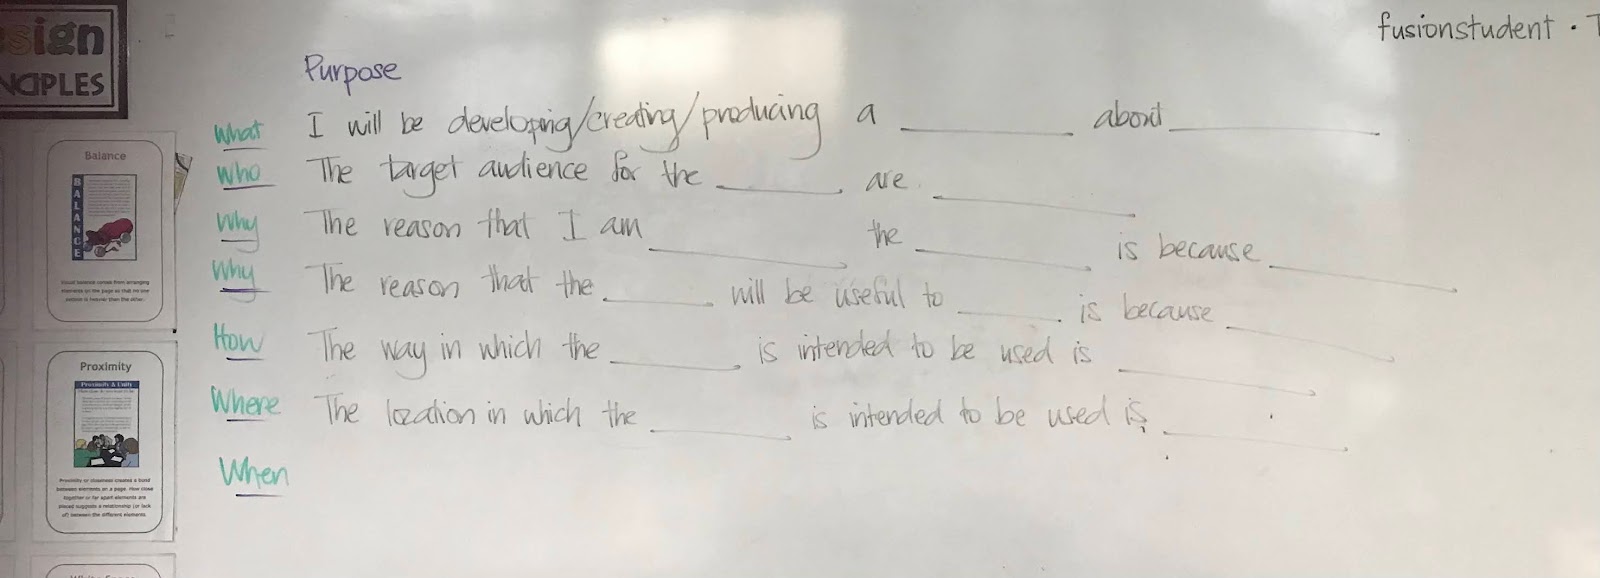 sign
NCIPLES
fusionstudent • T
Purpose
What I will be developing/creating/producing a ________ about ________
Who The target audience for the ________ are ________
Why The reason that I am ________ the ________ is because ________
Why The reason that the ________ will be useful to ________ is because ________
How The way in which the ________ is intended to be used is ________
Where The location in which the ________ is intended to be used is ________
When
Balance
BALANCE
Visual balance comes from arranging
elements on the page so that no one
section is heavier than the other.
Proximity
Proximity & Unity
Proximity or closeness creates a bond
between elements on a page. How close
together or far apart elements are
placed suggests a relationship (or lack
of) between the different elements.